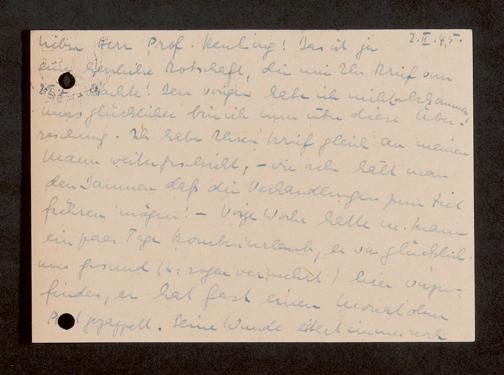 2.II.45.
Lieber Herr Prof. Keuling! Das ist ja
eine herrliche Botschaft, die mir Ihr Brief vom
brachte! Den vorigen habe ich nicht bekommen,
umso glücklicher bin ich nun über diese Über-
raschung. Ich habe Ihren Brief gleich an meinen
Mann weitergeschickt, – wie sehr hält man
den Daumen daß die Verhandlungen zum Ziel
führen mögen! – Vorige Woche hatte m. Mann
ein paar Tage Kombiurlaub, er war glücklich
uns gesund (u. sogar vermehrt) hier vorzu-
finden, er hat fast einen Monat ohne
Post gezappelt. Seine Wunde eitert immer noch